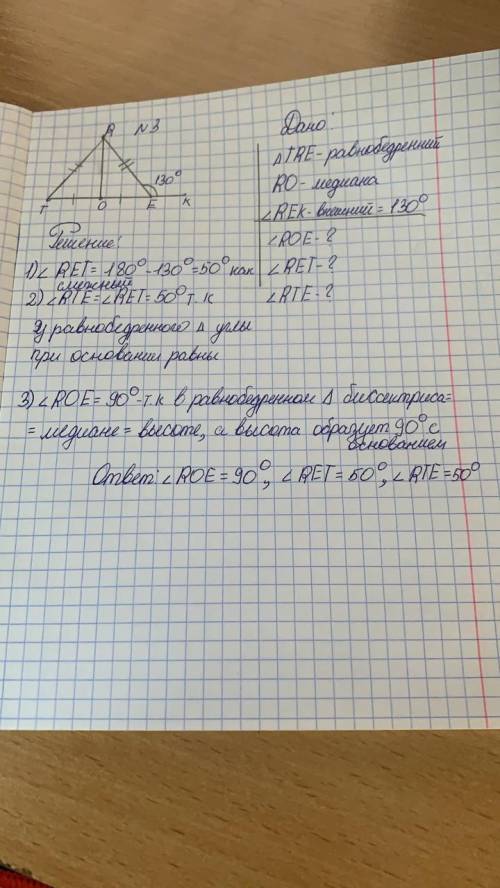 R N3
130°
T O E K
Дано:
ΔTRE - равнобедренний
RO - медиана
∠REK - внешний = 130°
∠ROE - ?
∠RET - ?
∠RTE - ?
Решение:
1) ∠RET = 180° - 130° = 50° как
смежный
2) ∠RTE = ∠RET = 50° т.к
У равнобедренного Δ углы
при основании равны
3) ∠ROE = 90° - т.к в равнобедренном Δ биссектриса =
= медиане = высоте, а высота образует 90° с
основанием
Ответ: ∠ROE = 90°, ∠RET = 50°, ∠RTE = 50°